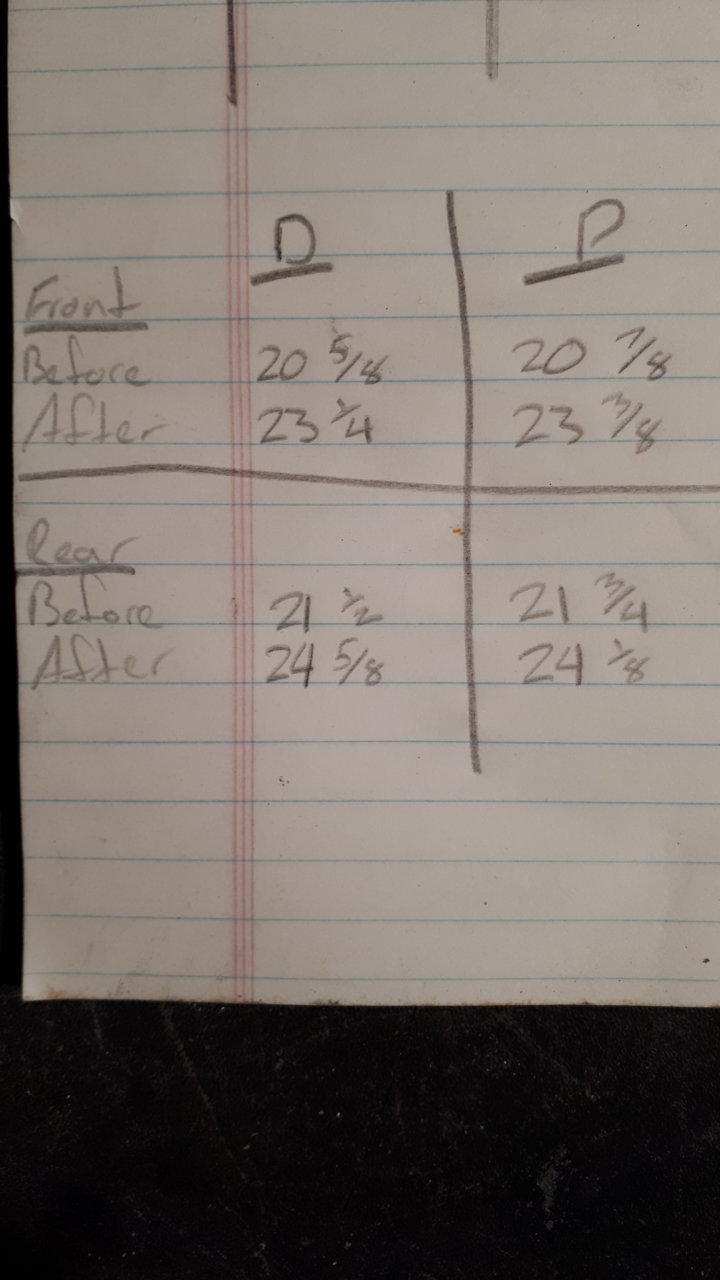 D P
Front
Before 20 5/8 20 7/8
After 23 1/4 23 3/8
Rear
Before 21 1/2 21 3/4
After 24 5/8 24 1/8